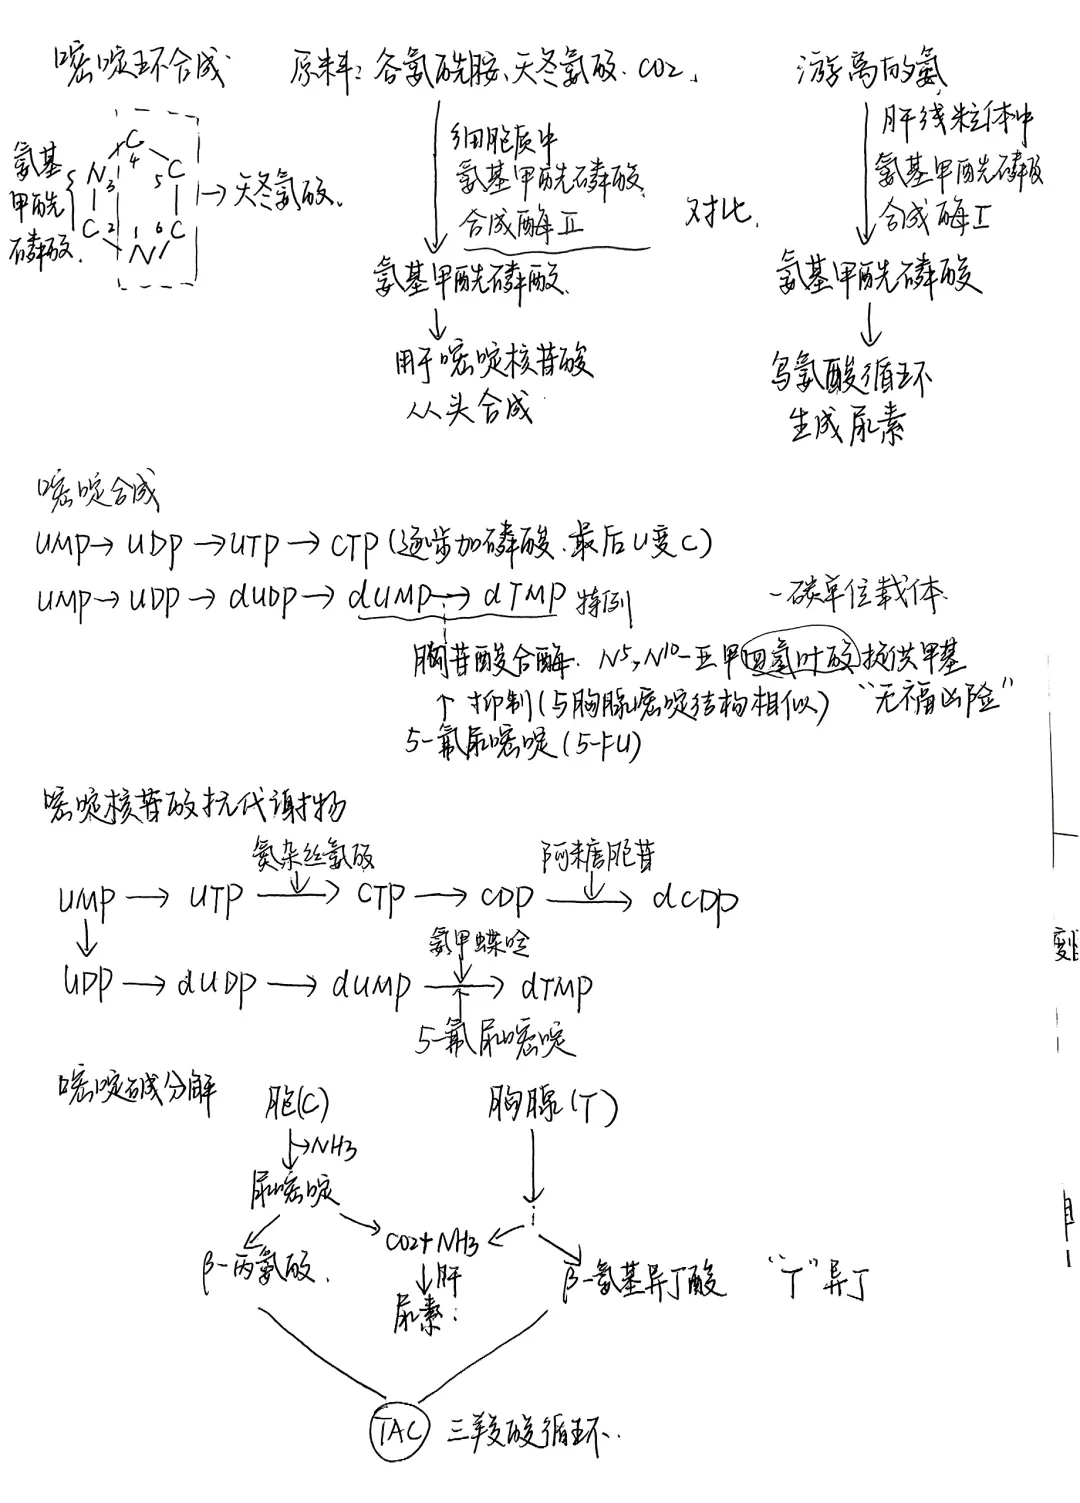 嘧啶环合成 原料：谷氨酰胺、天冬氨酸、CO2、 游离的氨
氨基
甲酰
磷酸
C
4
N
3
5
C
C
2
1
6
C
N
→天冬氨酸
细胞质中
氨基甲酰磷酸
合成酶Ⅱ
对比
肝线粒体中
氨基甲酰磷酸
合成酶Ⅰ
氨基甲酰磷酸
氨基甲酰磷酸
用于嘧啶核苷酸
从头合成
鸟氨酸循环
生成尿素
嘧啶合成
UMP→UDP→UTP→CTP(逐步加磷酸、最后U变C)
UMP→UDP→dUDP→dUMP→dTMP 特例
一碳单位载体
胸苷酸合酶. N5,N10-亚甲四氢叶酸提供甲基
↑抑制(与胸腺嘧啶结构相似) “无福凶险”
5-氟尿嘧啶(5-FU)
嘧啶核苷酸抗代谢物
氮杂丝氨酸 阿糖胞苷
UMP→UTP→CTP→CDP→dCDP
氨甲蝶呤
UDP→dUDP→dUMP→dTMP
5-氟尿嘧啶
嘧啶碱分解 胞(C) 胸腺(T)
→NH3
尿嘧啶
CO2+NH3
β-丙氨酸.
肝
β-氨基异丁酸 “T”异丁
尿素
TAC 三羧酸循环.